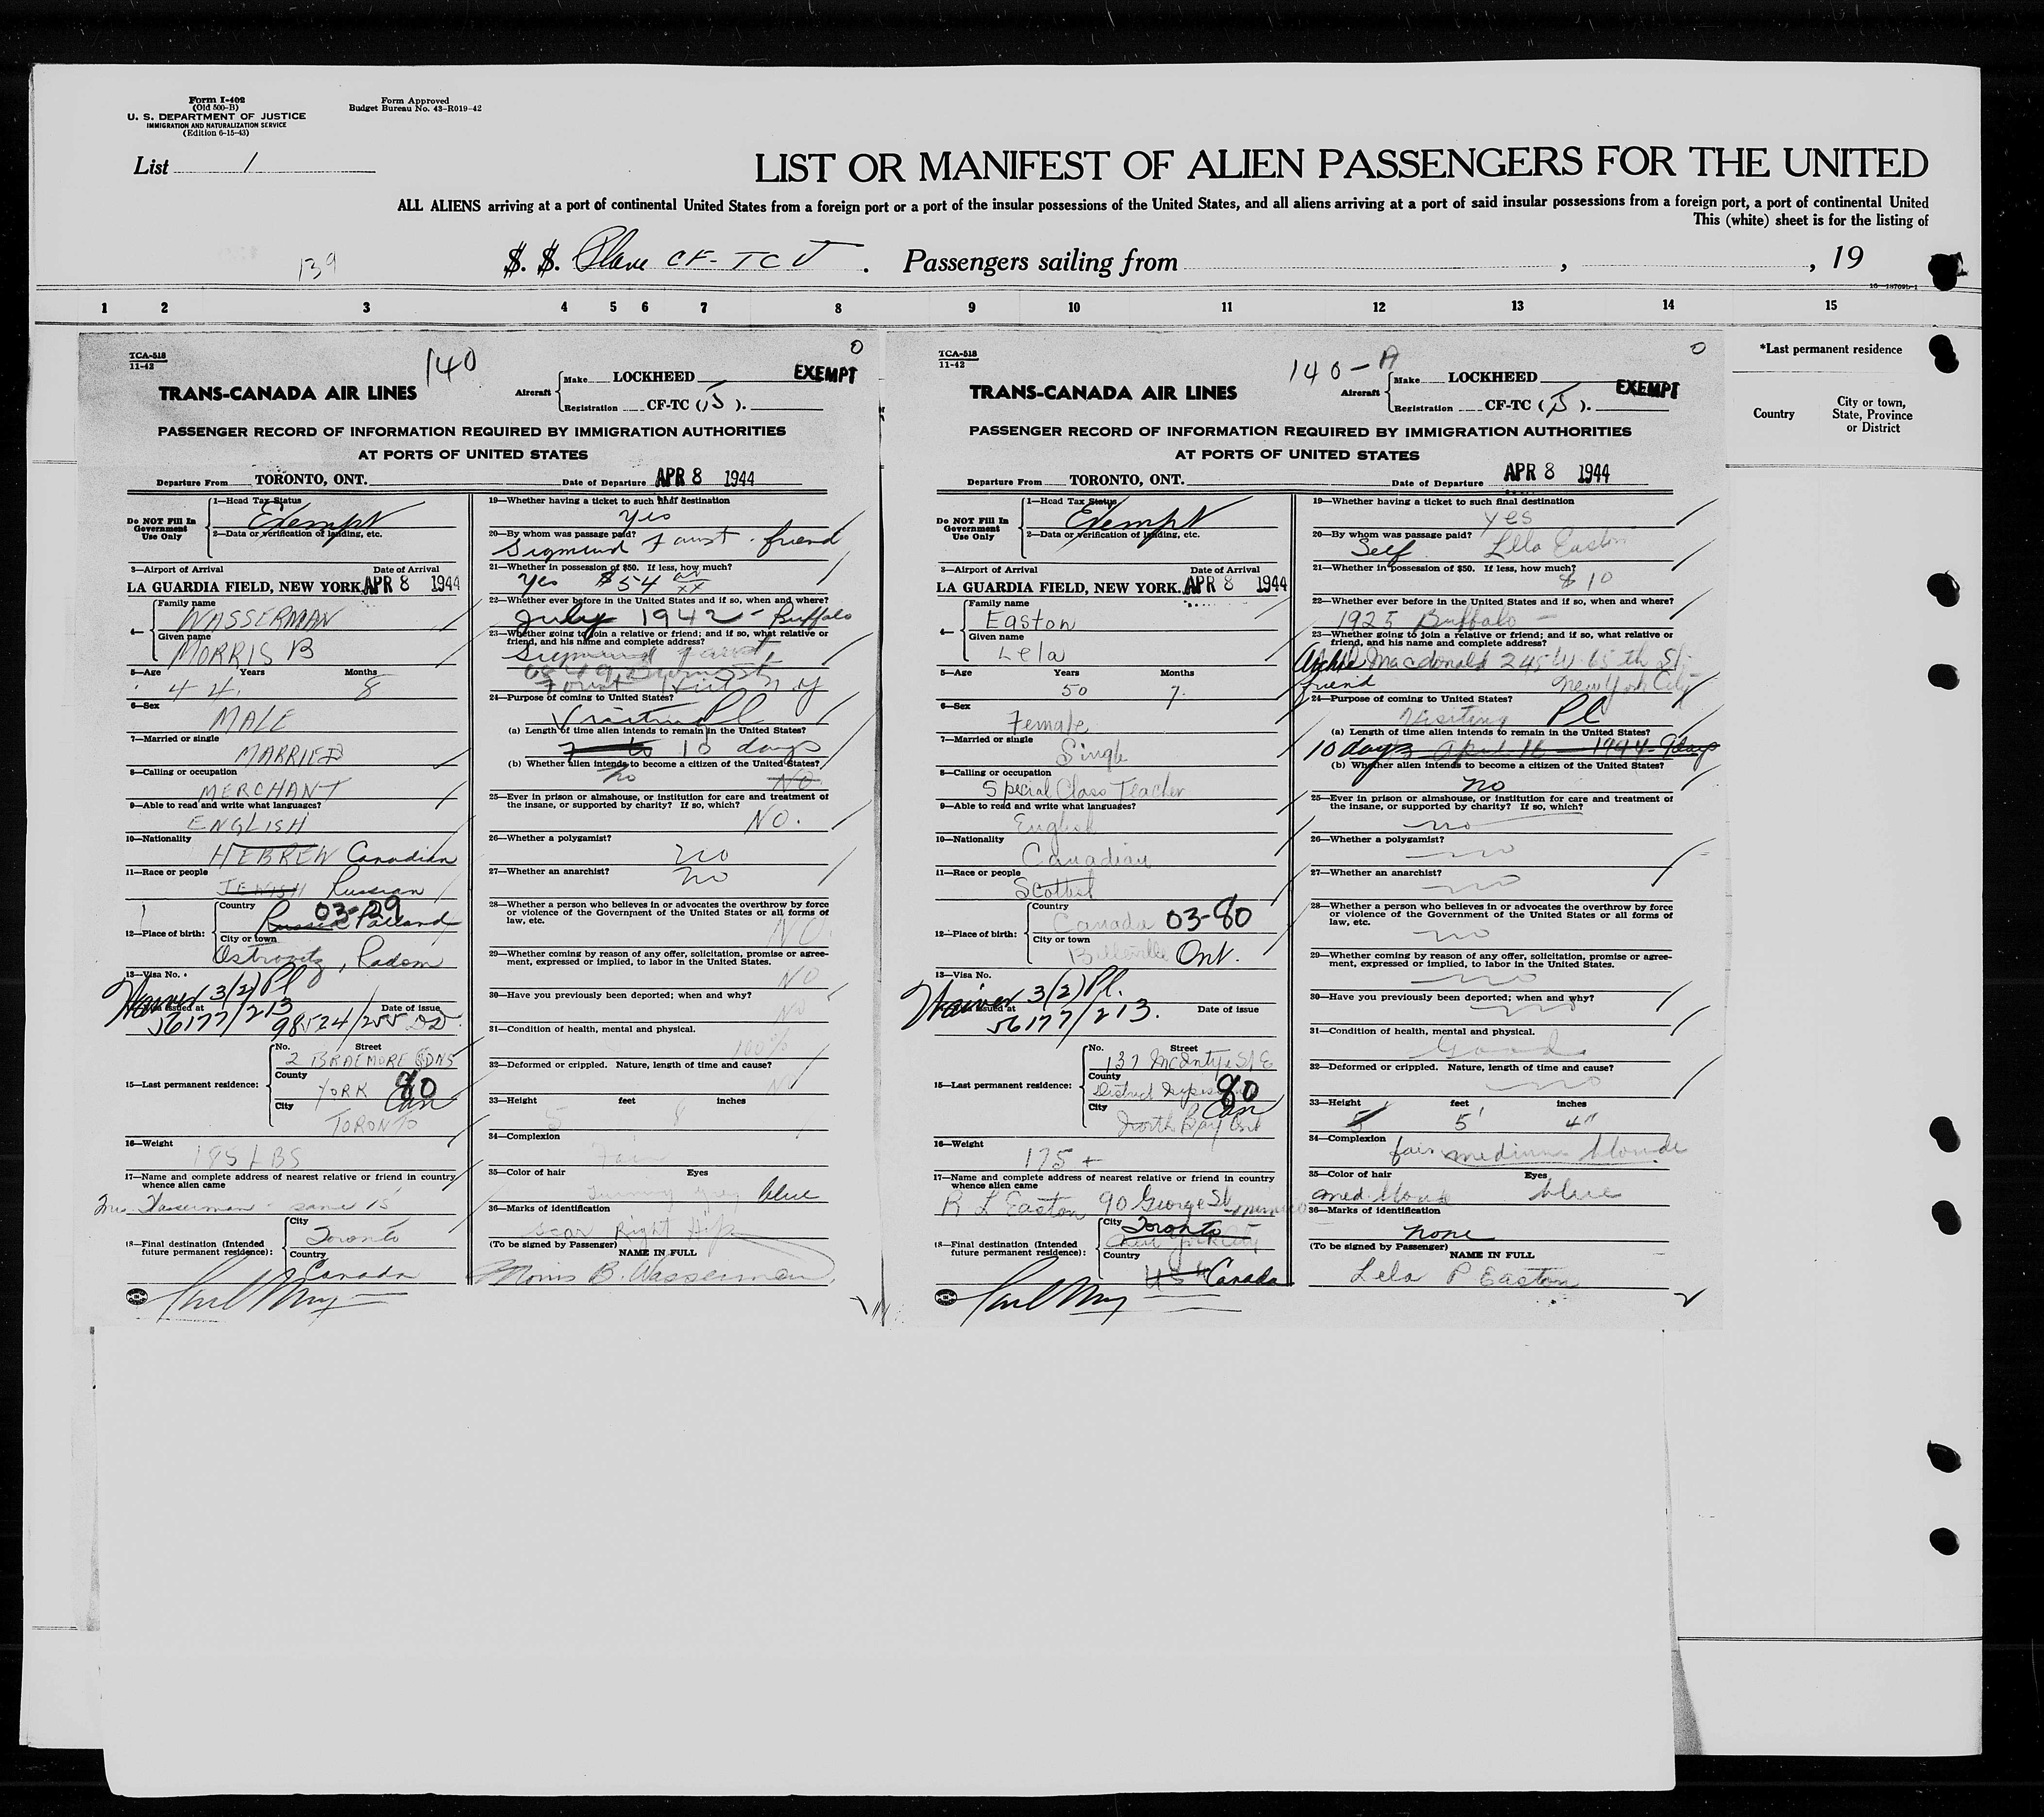 Form I-402
(Old 500-B)
U. S. DEPARTMENT OF JUSTICE
IMMIGRATION AND NATURALIZATION SERVICE
(Edition 6-15-43)
Form Approved
Budget Bureau No. 43-R019-42
List 1
LIST OR MANIFEST OF ALIEN PASSENGERS FOR THE UNITED
ALL ALIENS arriving at a port of continental United States from a foreign port or a part of the insular possessions of the United States, and all aliens arriving at a port of said insular possessions from a foreign port, a part of continental United
This (white) sheet is for the listing of
139
S. S. Plane CF-TCJ . Passengers sailing from , , 19
16—18709b-1
1 2 3 4 5 6 7 8 9 10 11 12 13 14 15
*Last permanent residence
Country
City or town, State, Province or District
TCA-518
11-42
140
0
TRANS-CANADA AIR LINES
Aircraft Make LOCKHEED
EXEMPT
Registration CF-TC (J).
PASSENGER RECORD OF INFORMATION REQUIRED BY IMMIGRATION AUTHORITIES
AT PORTS OF UNITED STATES
Departure From TORONTO, ONT. Date of Departure APR 8 1944
Do NOT Fill In Government Use Only
1—Head Tax Status
Exempt
2—Data or verification of landing, etc.
3—Airport of Arrival Date of Arrival
LA GUARDIA FIELD, NEW YORK. APR 8 1944
4—
Family name
WASSERMAN
Given name
MORRIS B
5—Age Years Months
44 8
6—Sex
MALE
7—Married or single
MARRIED
8—Calling or occupation
MERCHANT
9—Able to read and write what languages?
ENGLISH
10—Nationality
HEBREW Canadian
11—Race or people
JEWISH Russian
12—Place of birth:
Country
03-29
Russia Poland
City or town
Ostrovitz, Radom
13—Visa No.
Waiver 3(2) Pl
issued at Date of issue
56177/213
98524/255
15—Last permanent residence:
No. Street
2 BRAEMORE GDNS
County
YORK 80
Can
City
TORONTO
16—Weight
185 LBS
17—Name and complete address of nearest relative or friend in country
whence alien came
Mrs. Wasserman - same 15
18—Final destination (Intended future permanent residence):
City
Toronto
Country
Canada
19—Whether having a ticket to such final destination
Yes
20—By whom was passage paid?
Sigmund Faust - friend
21—Whether in possession of $50. If less, how much?
Yes $54
22—Whether ever before in the United States and if so, when and where?
July 1942 - Buffalo
23—Whether going to join a relative or friend; and if so, what relative or
friend, and his name and complete address?
Sigmund Faust,
N.Y
24—Purpose of coming to United States?
Visiting Pl
(a) Length of time alien intends to remain in the United States?
10 days
(b) Whether alien intends to become a citizen of the United States?
no NO
25—Ever in prison or almshouse, or institution for care and treatment of
the insane, or supported by charity? If so, which?
NO.
26—Whether a polygamist?
no
27—Whether an anarchist?
no
28—Whether a person who believes in or advocates the overthrow by force
or violence of the Government of the United States or all forms of
law, etc.
NO.
29—Whether coming by reason of any offer, solicitation, promise or agree-
ment, expressed or implied, to labor in the United States.
NO
30—Have you previously been deported; when and why?
NO
31—Condition of health, mental and physical.
100%
32—Deformed or crippled. Nature, length of time and cause?
NO
33—Height feet inches
5 8
34—Complexion
Fair
35—Color of hair Eyes
grey blue
36—Marks of identification
scar Right Hip
(To be signed by Passenger)
NAME IN FULL
Morris B. Wasserman
TCA-518
11-42
140-A
0
TRANS-CANADA AIR LINES
Aircraft Make LOCKHEED
EXEMPT
Registration CF-TC (J).
PASSENGER RECORD OF INFORMATION REQUIRED BY IMMIGRATION AUTHORITIES
AT PORTS OF UNITED STATES
Departure From TORONTO, ONT. Date of Departure APR 8 1944
Do NOT Fill In Government Use Only
1—Head Tax Status
Exempt
2—Data or verification of landing, etc.
3—Airport of Arrival Date of Arrival
LA GUARDIA FIELD, NEW YORK. APR 8 1944
4—
Family name
Easton
Given name
Lela
5—Age Years Months
50 7.
6—Sex
Female
7—Married or single
Single
8—Calling or occupation
Special Class Teacher
9—Able to read and write what languages?
English
10—Nationality
Canadian
11—Race or people
Scottish
12—Place of birth:
Country
Canada 03-80
City or town
Belleville Ont.
13—Visa No.
Waiver 3(2) Pl.
issued at Date of issue
56177/213.
15—Last permanent residence:
No. Street
137 McIntyre St E
County
District Nipissing 80
Can
City
North Bay Ont
16—Weight
175 +
17—Name and complete address of nearest relative or friend in country
whence alien came
R L Easton 90 George St Mimico
18—Final destination (Intended future permanent residence):
City
Toronto
New York City
Country
USA Canada
19—Whether having a ticket to such final destination
yes
20—By whom was passage paid?
Self Lela Easton
21—Whether in possession of $50. If less, how much?
$10
22—Whether ever before in the United States and if so, when and where?
1925 Buffalo -
23—Whether going to join a relative or friend; and if so, what relative or
friend, and his name and complete address?
Archie Macdonald 245 W. 65th St;
friend New York City
24—Purpose of coming to United States?
Visiting Pl
(a) Length of time alien intends to remain in the United States?
10 days April 16 - 1944 - 9 days
(b) Whether alien intends to become a citizen of the United States?
no
25—Ever in prison or almshouse, or institution for care and treatment of
the insane, or supported by charity? If so, which?
no
26—Whether a polygamist?
no
27—Whether an anarchist?
no
28—Whether a person who believes in or advocates the overthrow by force
or violence of the Government of the United States or all forms of
law, etc.
no
29—Whether coming by reason of any offer, solicitation, promise or agree-
ment, expressed or implied, to labor in the United States.
no
30—Have you previously been deported; when and why?
no
31—Condition of health, mental and physical.
Good
32—Deformed or crippled. Nature, length of time and cause?
no
33—Height feet inches
5 5' 4"
34—Complexion
fair medium blonde
35—Color of hair Eyes
med. blonde blue
36—Marks of identification
none
(To be signed by Passenger)
NAME IN FULL
Lela P Easton